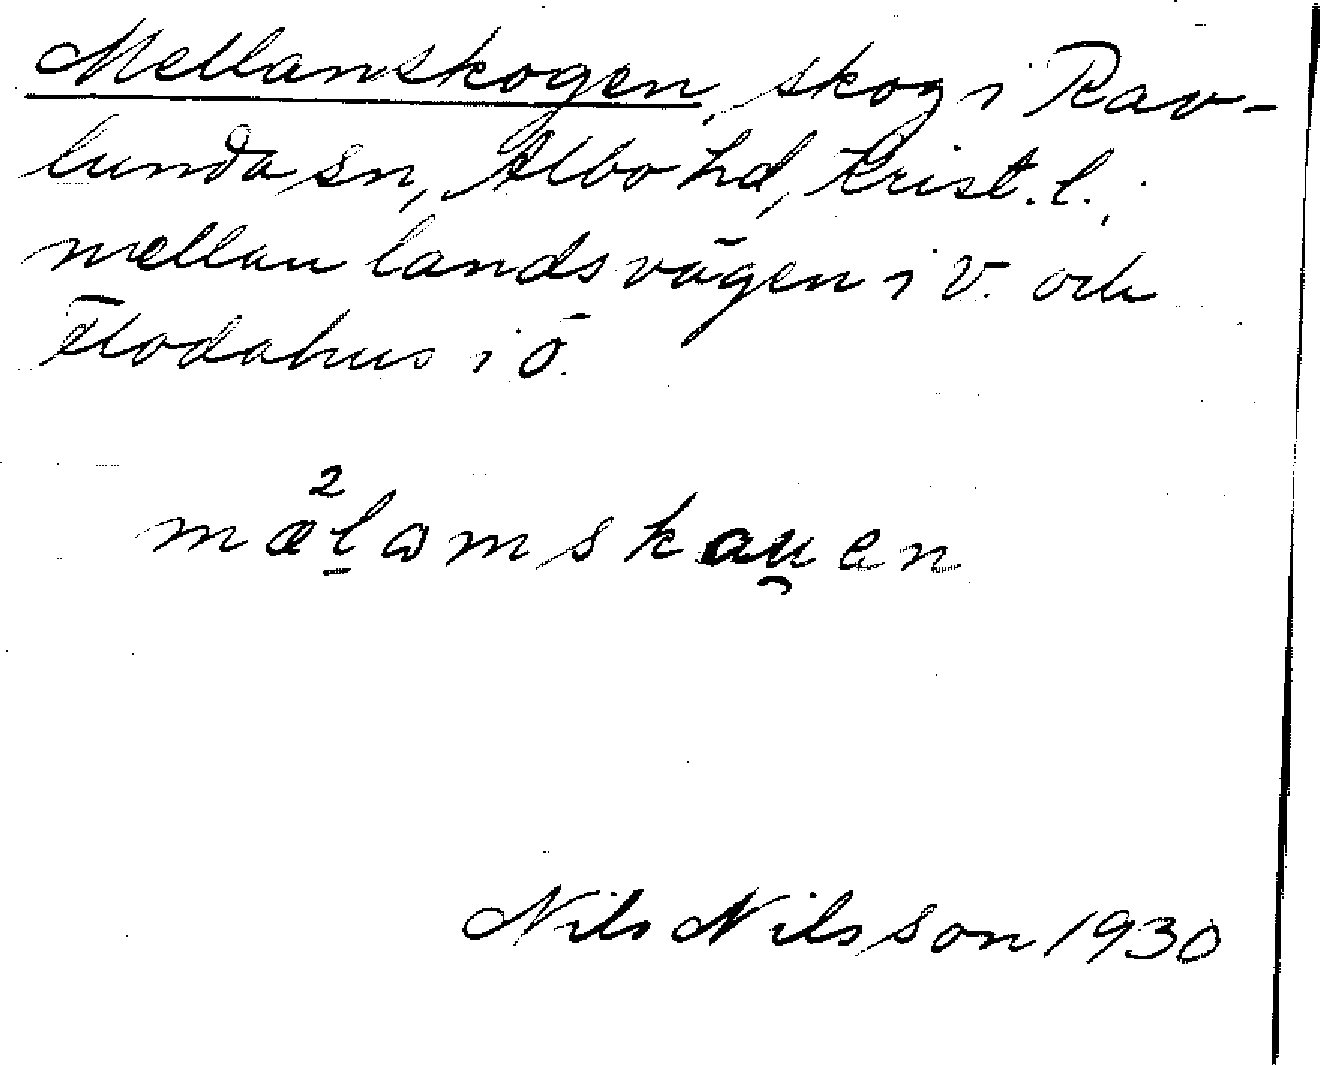 Mellanskogen, skog i Rav-
lunda sn, Albo hd, Krist. l.,
mellan landsvägen i V. och
i Ö.
2
mælamskauen
Nils Nilsson 1930